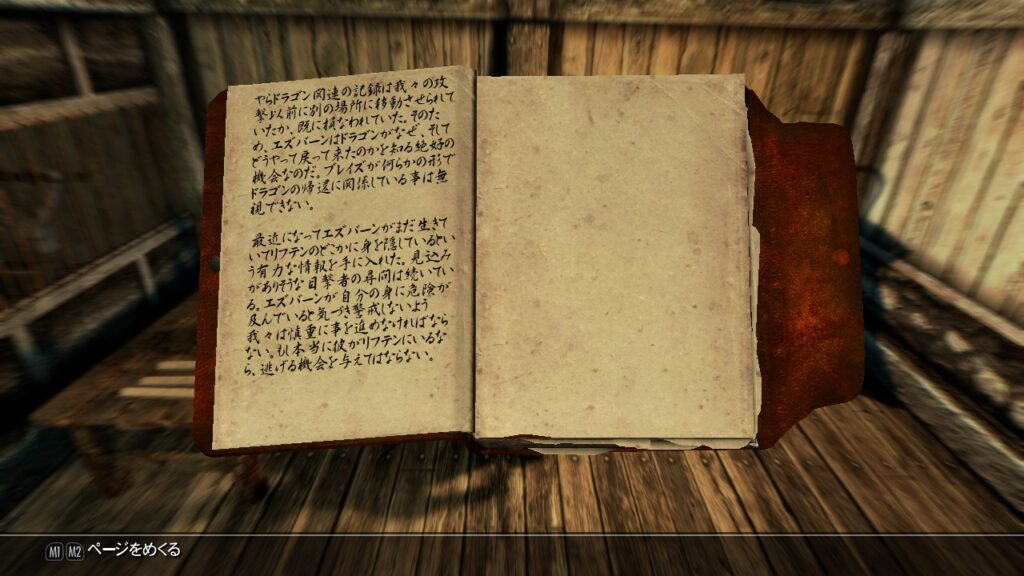 やらドラゴン関連の記録は我々の攻
撃以前に別の場所に移動させられて
いたか、既に損なわれていた。そのた
め、エズバーンはドラゴンがなぜ、そして
どうやって戻って来たのかを知る絶好の
機会なのだ。ブレイズが何らかの形で
ドラゴンの帰還に関係している事は無
視できない。
最近になってエズバーンがまだ生きて
いてリフテンのどこかに身を隠しているとい
う有力な情報を手に入れた。見込み
がありそうな目撃者の尋問は続いてい
る。エズバーンが自分の身に危険が
及んでいると気づき警戒しないよう
我々は慎重に事を進めなければなら
ない。もし本当に彼がリフテンにいるな
ら、逃げる機会を与えてはならない。
M1 M2 ページをめくる